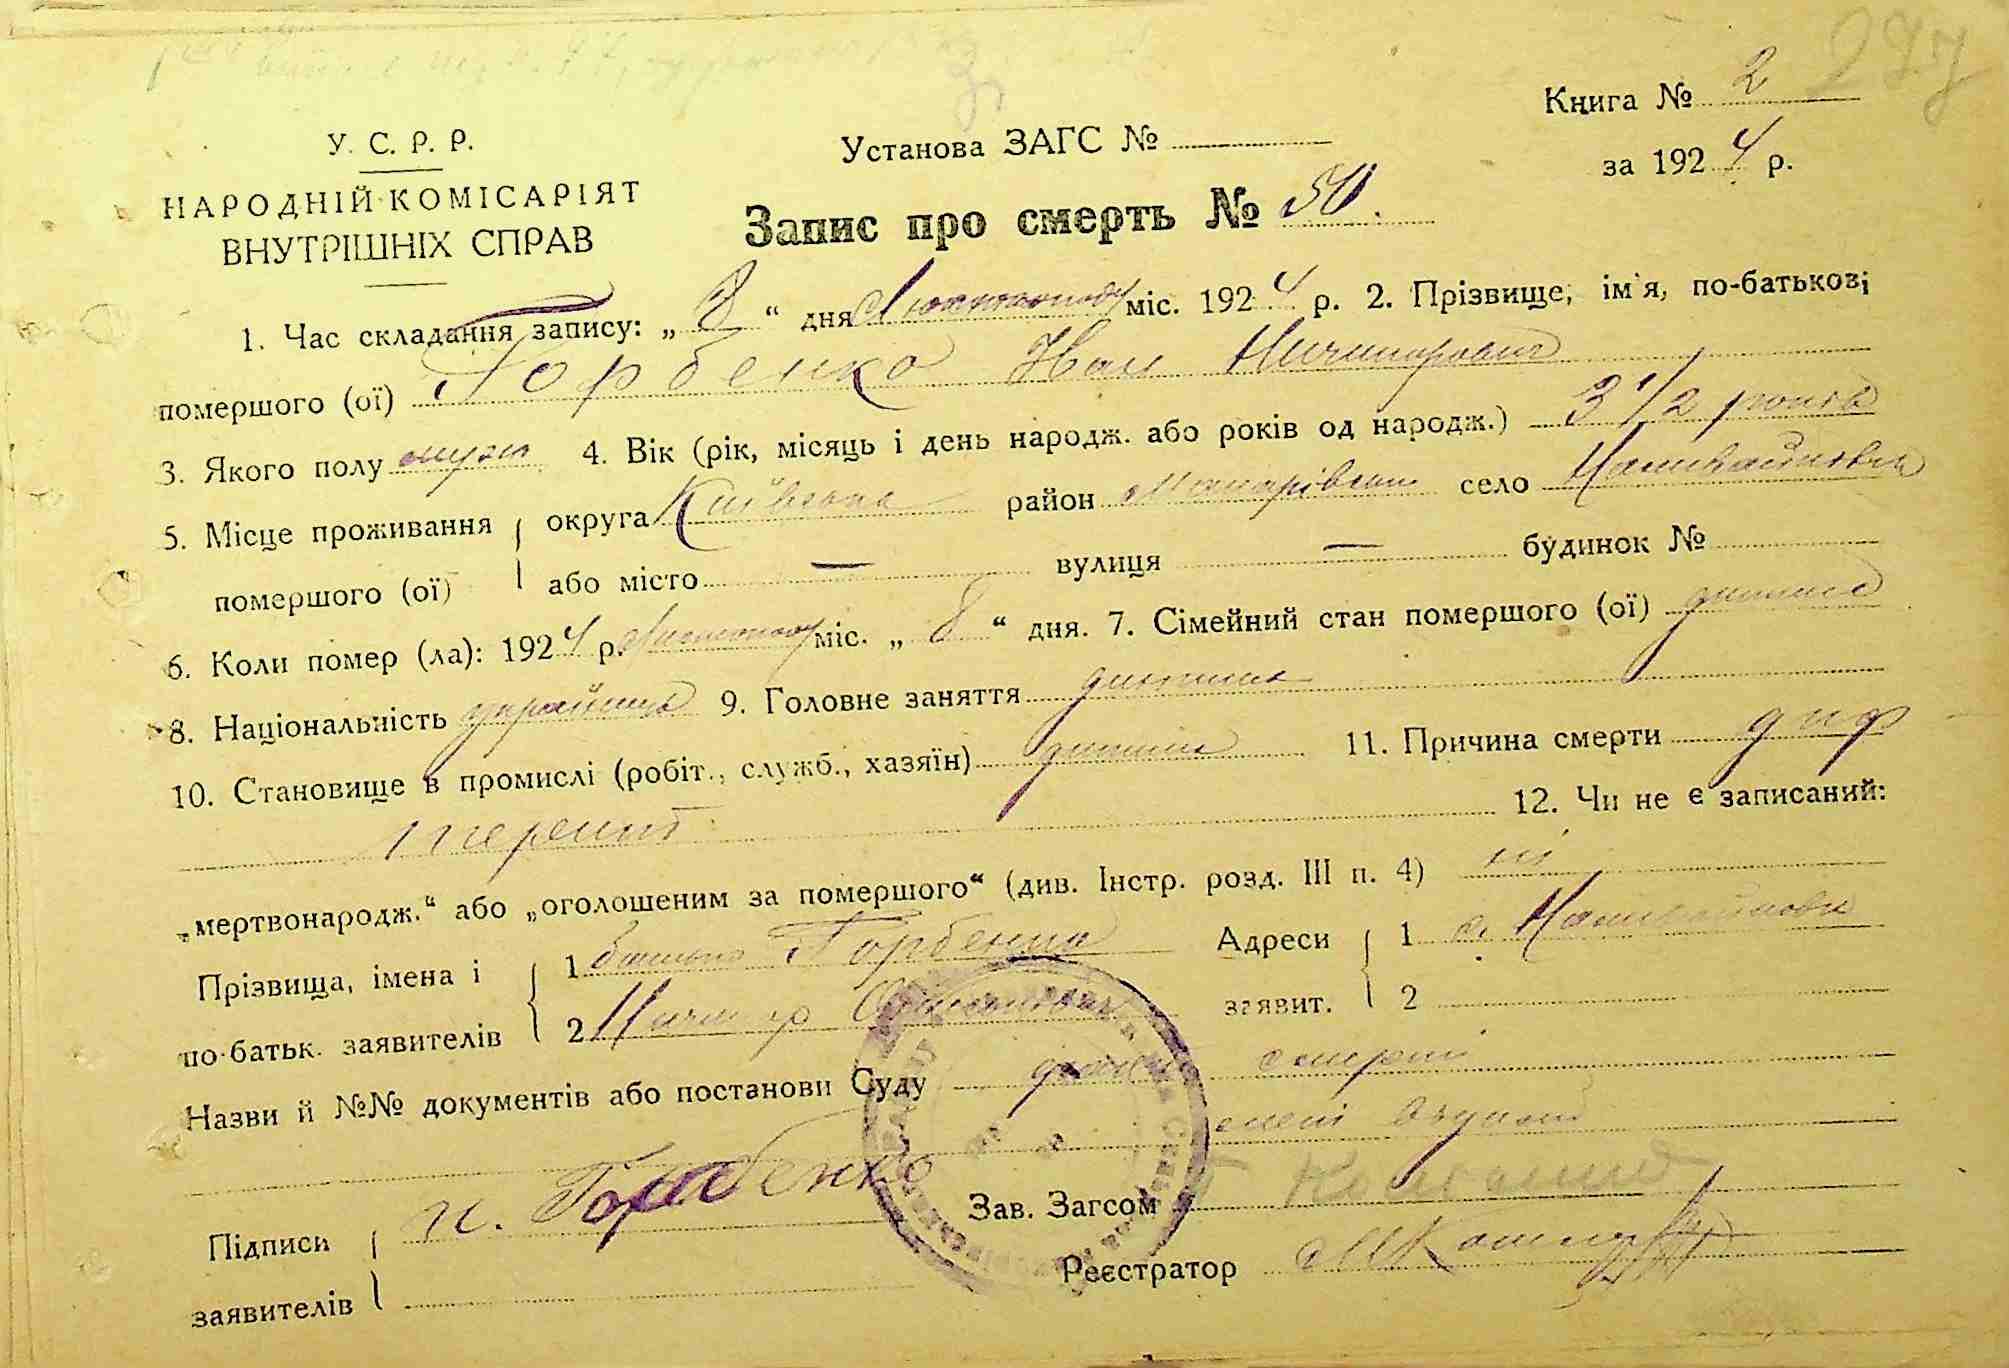 Книга № 2
У. С. Р. Р.
Установа ЗАГС №
за 1924 р.
НАРОДНІЙ КОМІСАРІЯТ
ВНУТРІШНІХ СПРАВ
Запис про смерть № 50.
1. Час складання запису: „ 8 “ дня Листопаду міс. 1924 р. 2. Прізвище, ім'я, по-батькові
помершого (ої) Горбенко Іван Ничипорович
3. Якого полу муж 4. Вік (рік, місяць і день народж. або років од народж.) 3 1/2 років
5. Місце проживання округа Київська район Макарівський село Наливайківка
помершого (ої) або місто — вулиця — будинок №
6. Коли помер (ла): 1924 р. Листопаду міс. „ 8 “ дня. 7. Сімейний стан помершого (ої) дитина
8. Національність українець 9. Головне заняття дитина
10. Становище в промислі (робіт., служб., хазяїн) дитина 11. Причина смерти диф
терит 12. Чи не є записаний:
„мертвонародж.“ або „оголошеним за помершого“ (див. Інстр. розд. III п. 4) ні
Прізвища, імена і 1 батько Горбенко Адреси 1 с. Наливайківка
по-батьк. заявителів 2 Ничипор заявит. 2
Назви й №№ документів або постанови Суду смерті
Підписи н. Горбенко Зав. Загсом
заявителів Реєстратор